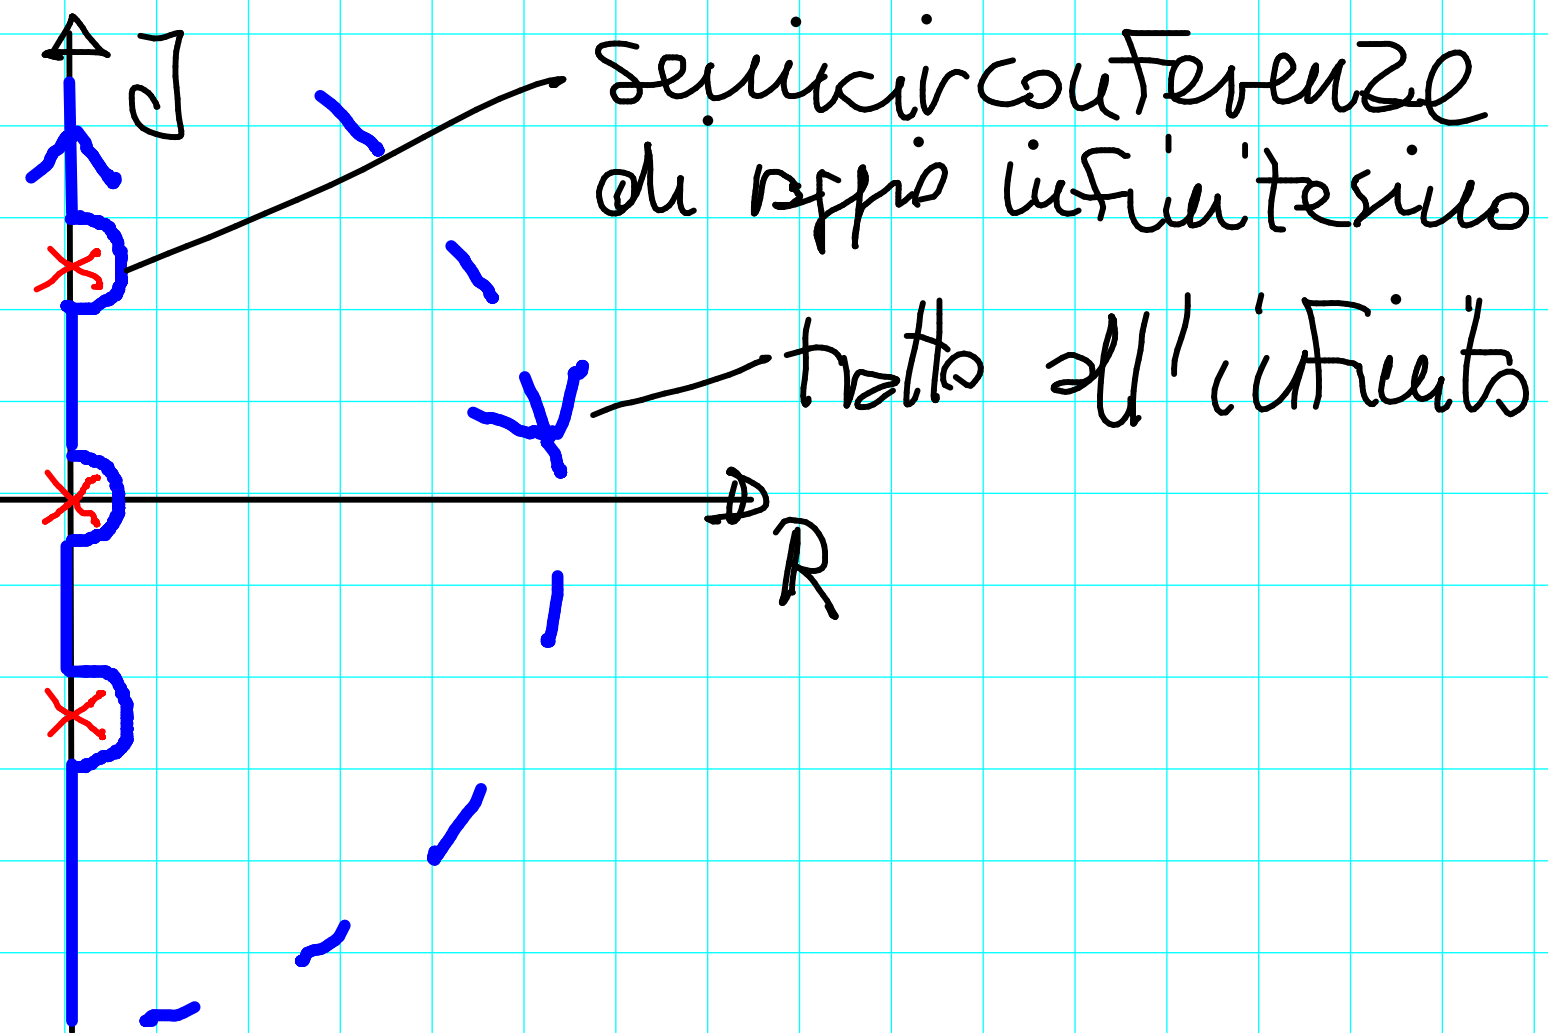 J
semicirconferenze
di raggio infinitesimo
tratto all'infinito
R